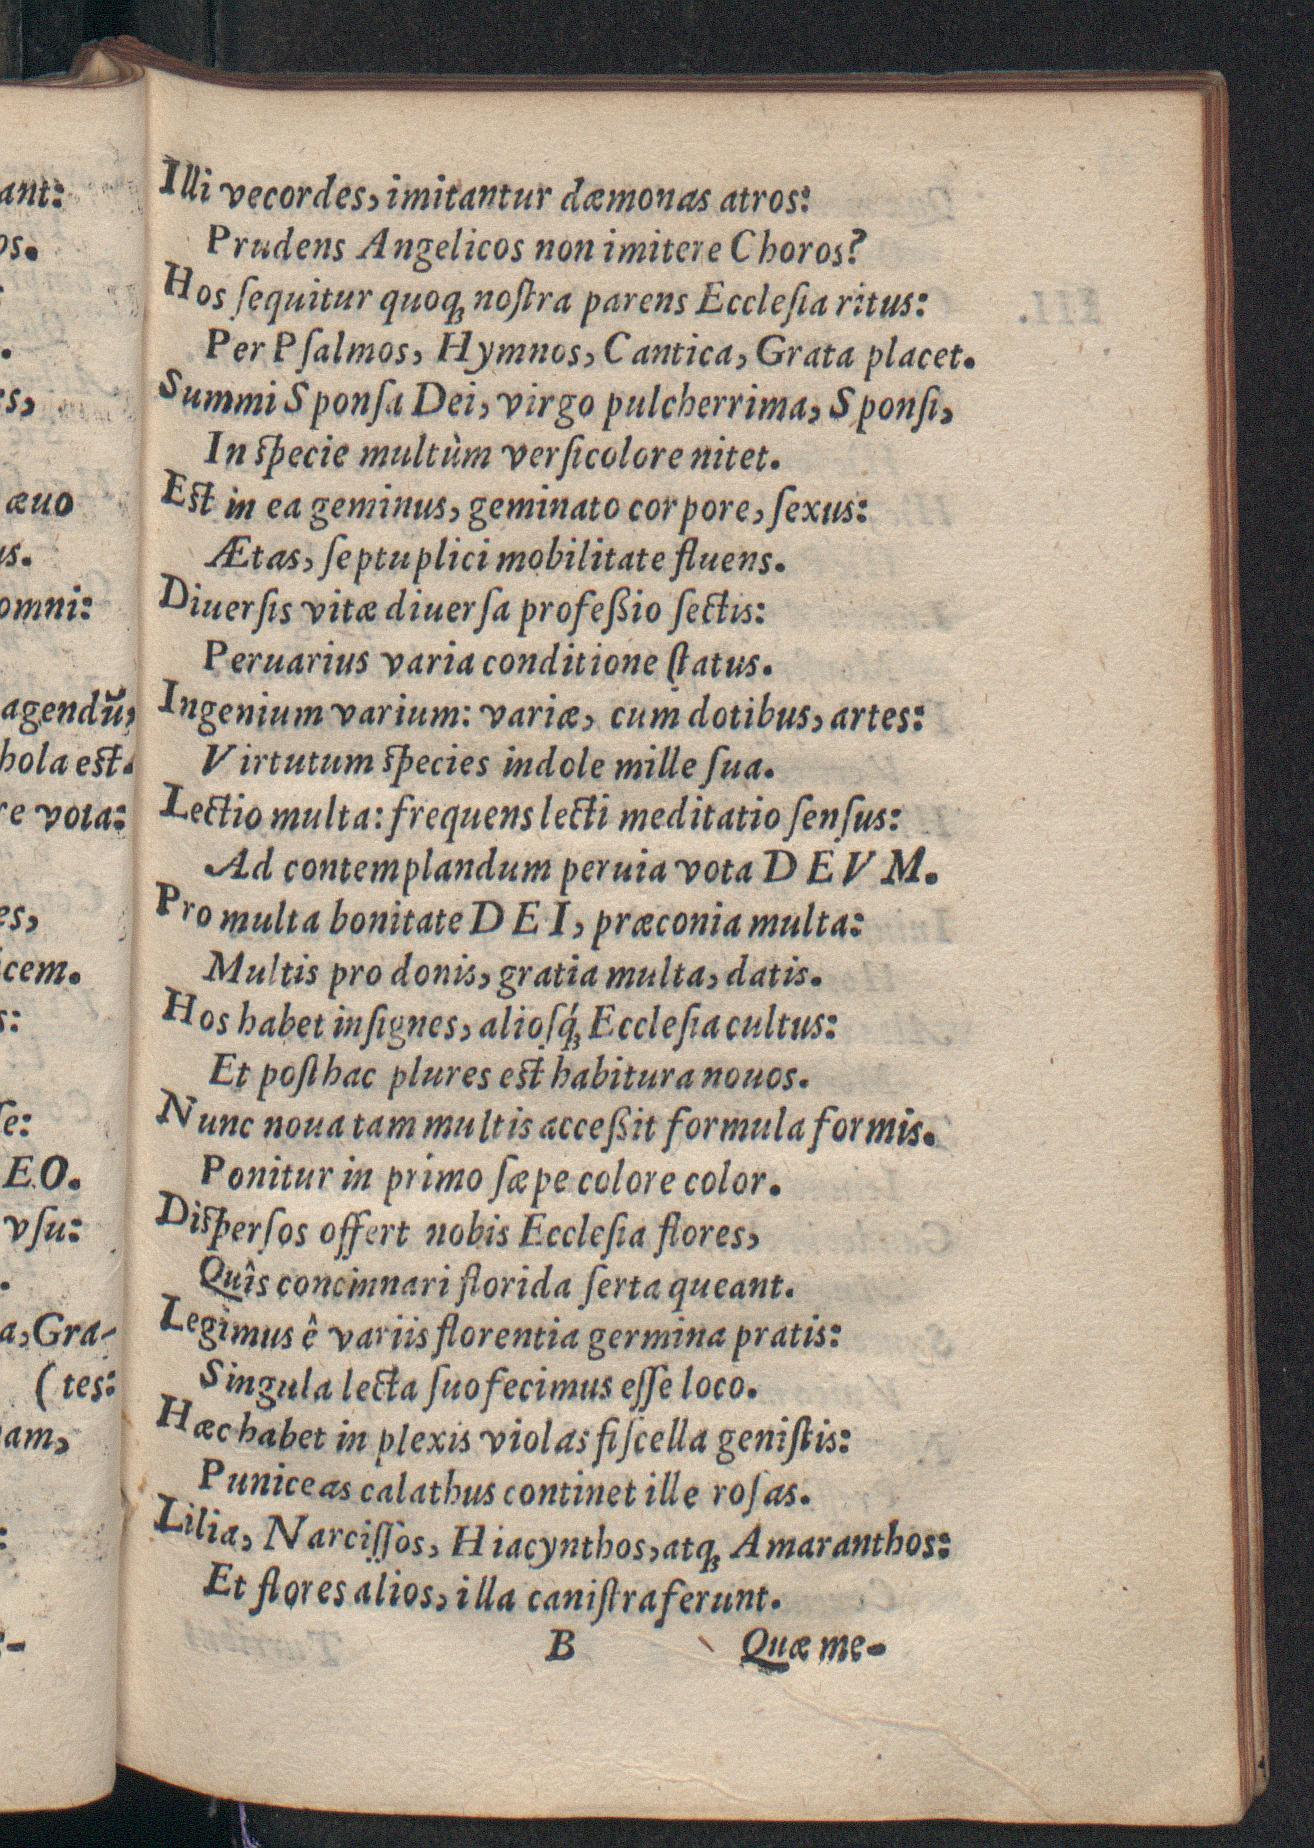 Illi vecordes, imitantur dæmonas atros:
Prudens Angelicos non imitere Choros?
Hos ſequitur quoq; noſtra parens Eccleſia ritus:
Per Pſalmos, Hymnos, Cantica, Grata placet.
Summi Sponſa Dei, virgo pulcherrima, Sponſi,
In ſpecie multùm verſicolore nitet.
Eſt in ea geminus, geminato corpore, ſexus:
Ætas, ſeptuplici mobilitate fluens.
Diuerſis vitæ diuerſa profeßio ſectis:
Peruarius varia conditione ſtatus.
Ingenium varium: variæ, cum dotibus, artes:
Virtutum ſpecies indole mille ſua.
Lectio multa: frequens lecti meditatio ſenſus:
Ad contemplandum peruia vota DEVM.
Pro multa bonitate DEI, præconia multa:
Multis pro donis, gratia multa, datis.
Hos habet inſignes, alioſq́; Eccleſia cultus:
Et poſthac plures eſt habitura nouos.
Nunc noua tam multis acceßit formula formis.
Ponitur in primo ſæpe colore color.
Diſperſos offert nobis Eccleſia flores,
Quîs concinnari florida ſerta queant.
Legimus ê variis florentia germina pratis:
Singula lecta ſuo fecimus eſſe loco.
Hæc habet in plexis violas fiſcella geniſtis:
Puniceas calathus continet ille roſas.
Lilia, Narciſſos, Hiacynthos, atq; Amaranthos:
Et flores alios, illa caniſtra ferunt.
B Quæ me-
ant:
os.
es,
æuo
us.
omni:
agendũ,
hola eſt.
re vota:
es,
icem.
s:
ſe:
EO.
vſu:
a, Gra-
(tes:
am,